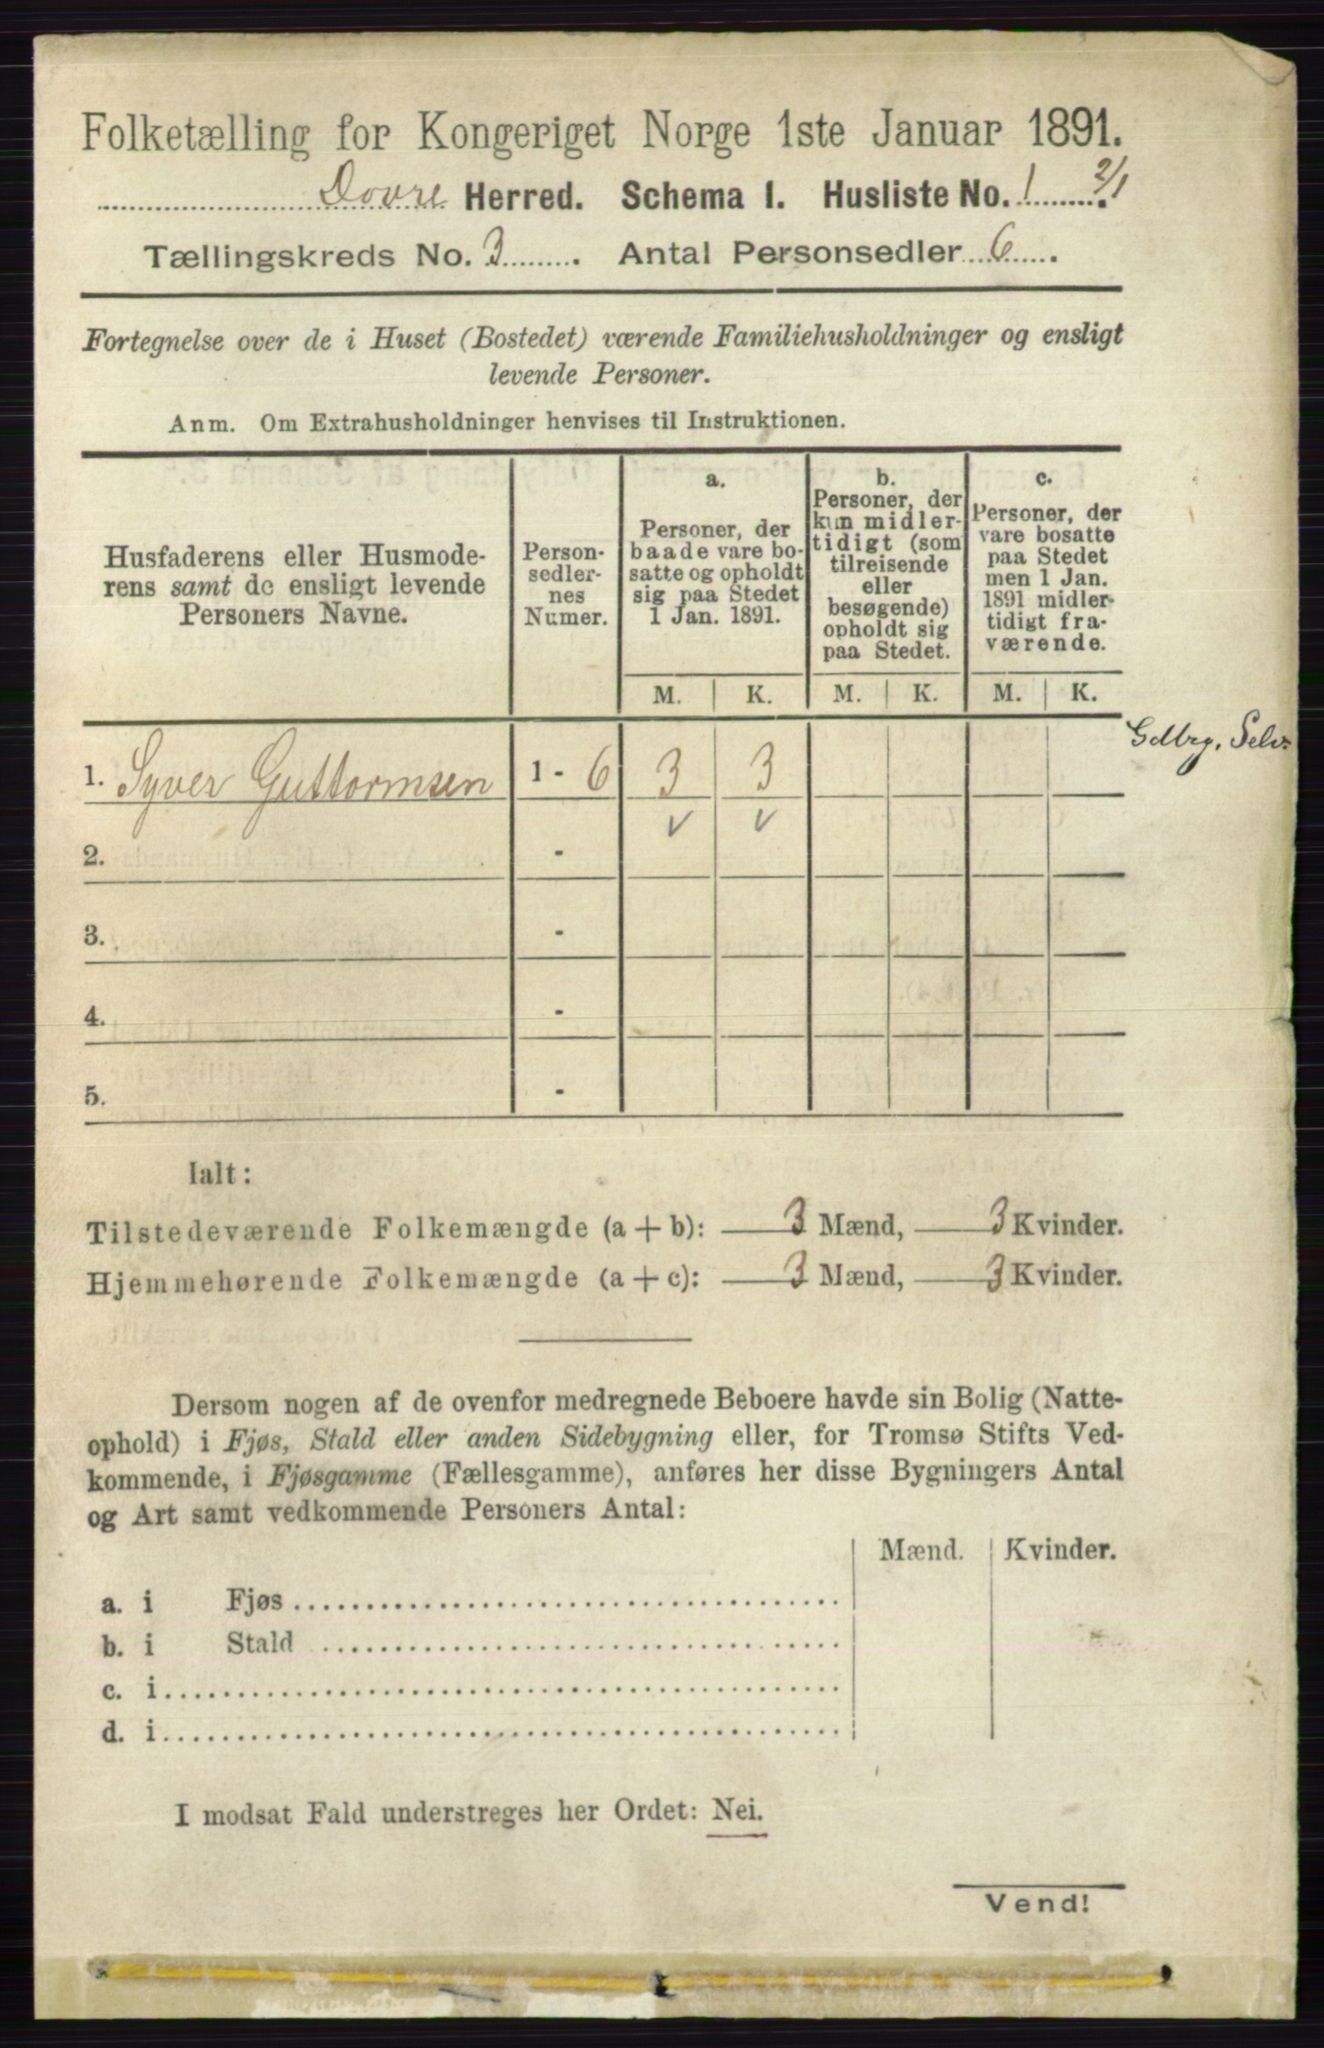 Folketælling for Kongeriget Norge 1ste Januar 1891.
Dovre Herred. Schema I. Husliste No. 1 2/1
Tællingskreds No. 3. Antal Personsedler 6.
Fortegnelse over de i Huset (Bostedet) værende Familiehusholdninger og ensligt
levende Personer.
Anm. Om Extrahusholdninger henvises til Instruktionen.
Husfaderens eller Husmode-
rens samt de ensligt levende
Personers Navne.
Person-
sedler-
nes
Numer.
a.
Personer, der
baade vare bo-
satte og opholdt
sig paa Stedet
1 Jan. 1891.
b.
Personer, der
kun midler-
tidigt (som
tilreisende
eller
besøgende)
opholdt sig
paa Stedet.
c.
Personer, der
vare bosatte
paa Stedet
men 1 Jan.
1891 midler-
tidigt fra-
værende.
M. K. M. K. M. K.
1. Syver Guttormsen 1 - 6 3 3 Gdbrg. Selv.
✓ ✓
2. -
3. -
4. -
5. -
Ialt:
Tilstedeværende Folkemængde (a + b): 3 Mænd, 3 Kvinder.
Hjemmehørende Folkemængde (a + c): 3 Mænd, 3 Kvinder.
Dersom nogen af de ovenfor medregnede Beboere havde sin Bolig (Natte-
ophold) i Fjøs, Stald eller anden Sidebygning eller, for Tromsø Stifts Ved-
kommende, i Fjøsgamme (Fællesgamme), anføres her disse Bygningers Antal
og Art samt vedkommende Personers Antal:
Mænd. Kvinder.
a. i Fjøs
b. i Stald
c. i
d. i
I modsat Fald understreges her Ordet: Nei.
Vend!